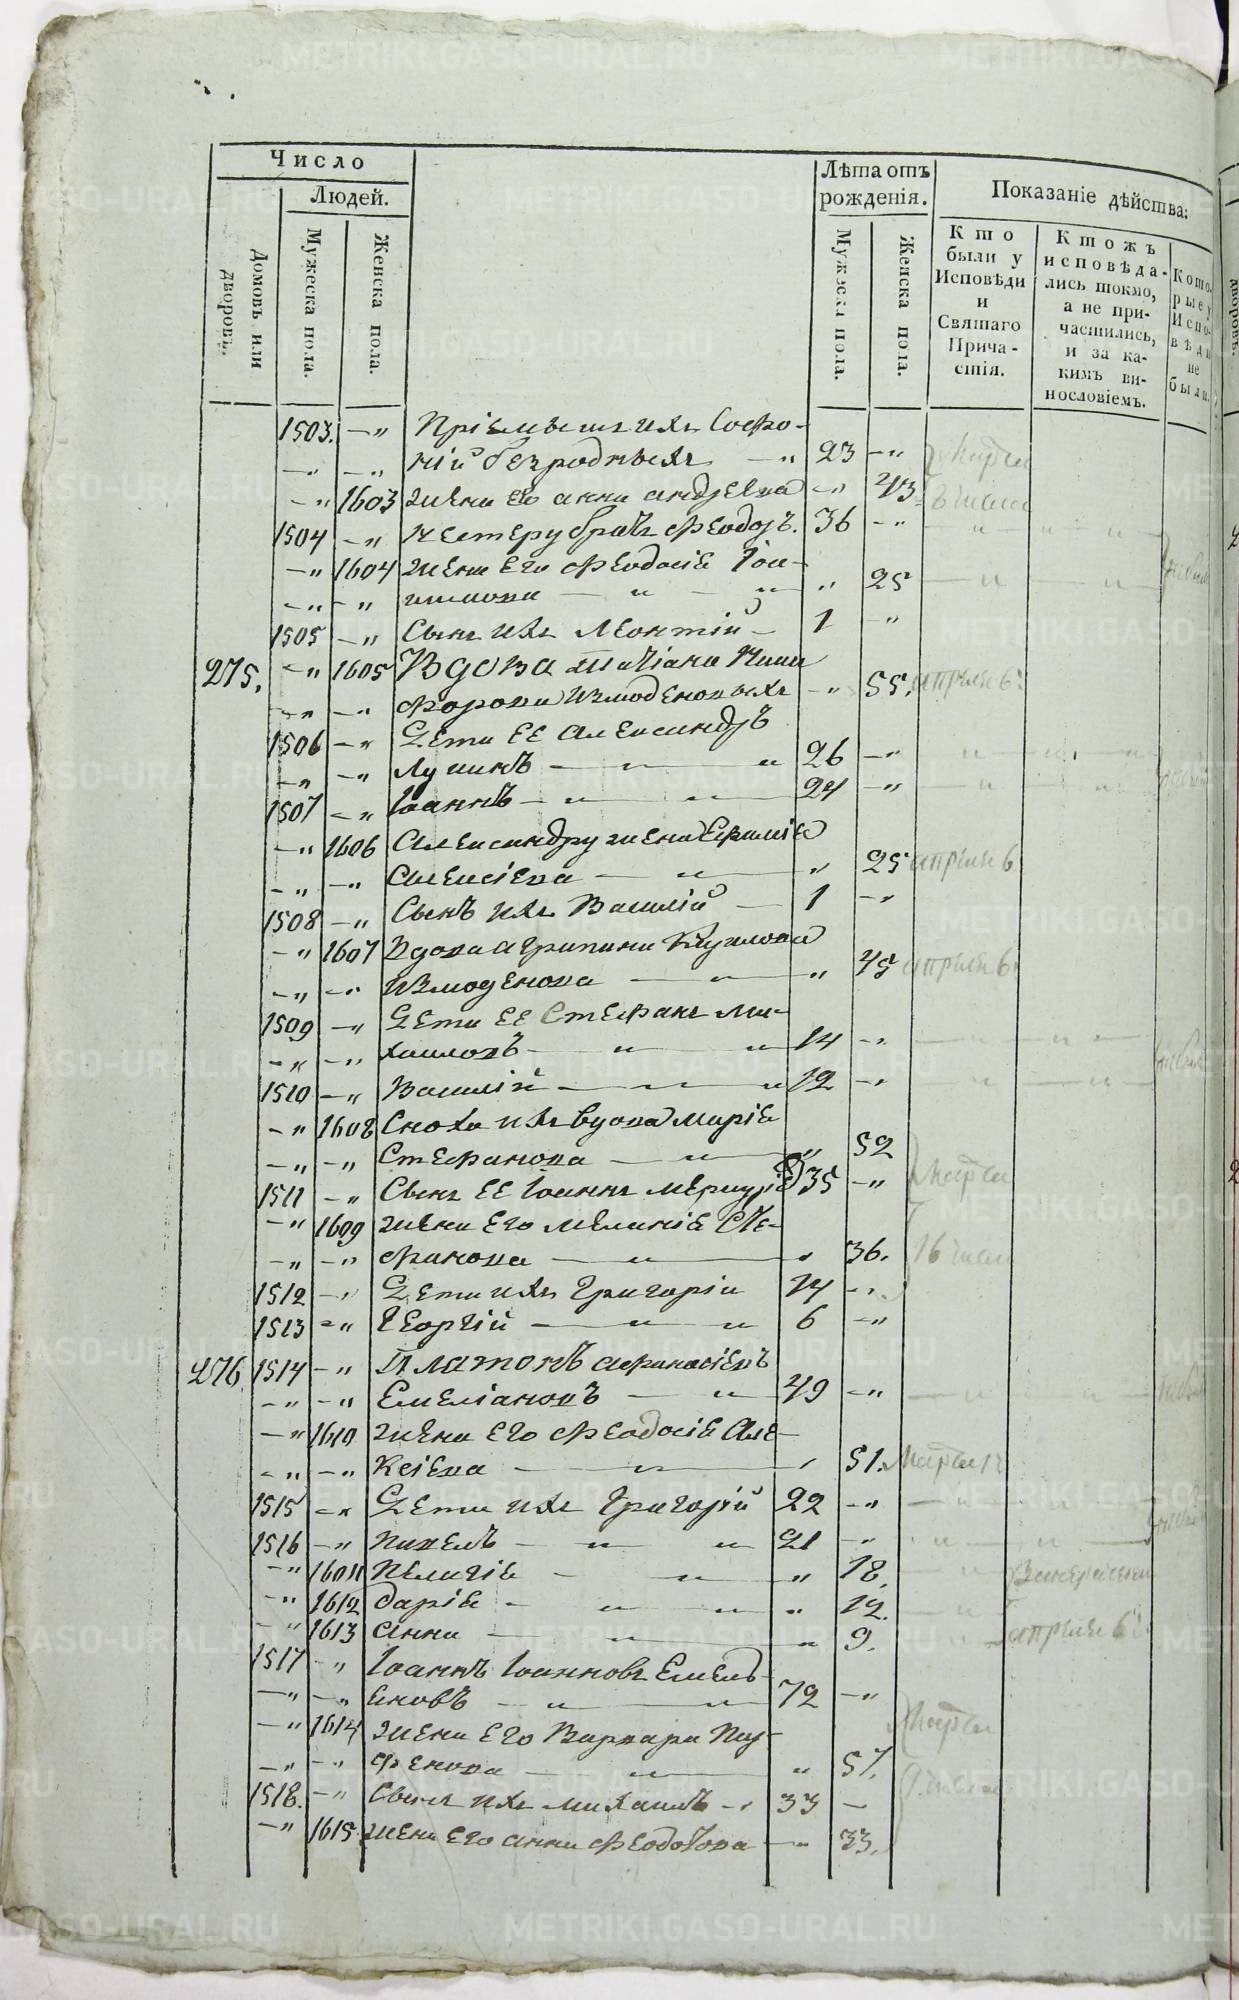 Число
Людей.
Домовъ или дворовъ.
Мужеска пола.
Женска пола.
Лѣта отъ рожденія.
Мужска пола.
Женска пола.
Показаніе дѣйства:
Кто были у Исповѣди и Святаго Причастія.
Ктожъ исповѣда-лись токмо, а не при-частились, и за ка-кимъ ви-нословіемъ.
Кото-рые у Испо-вѣди не были.
1503. —„ Пріемышъ ихъ Софро-
—„ —„ ній безродныхъ —„ 23 —„ Марта
—„ 1603 жена его анна андреева —„ 43 числа
1504 —„ Нестеру братъ Феодоръ. 36 —„
—„ 1604 жена его Феодосіе Іоа-
—„ —„ кимова — „ — „ „ 25
1505 —„ Сынъ ихъ Леонтій — 1 —„
275. —„ 1605 Вдова татіана Ники
—„ —„ форова Измоденовыхъ —„ 55. апрѣля 6.
1506 —„ Дети ее Александръ
—„ —„ Лукинъ — „ — „ 26 —„
1507 —„ Іоаннъ — „ — „ 24 —„
—„ 1606 Александру жена Ефиміе
—„ —„ Алексіева — „ — „ 25 апрѣля 6
1508 —„ Сынъ ихъ Василій — 1 —„
—„ 1607 Вдова агрипина Кирилова
—„ —„ Измоденова — „ — „ 45 апрѣля 6
1509 —„ Дети ее Стефанъ Ми-
—„ —„ хаиловъ — „ — „ 14 —„
1510 —„ Василій — — „ 12 —„
—„ 1608 Сноха ихъ вдова Маріе
—„ —„ Стефанова — „ — „ 52
1511 —„ Сынъ ее Іоаннъ меркуріе 35 —„ Марта
—„ 1609 жена его меланіе Сте-
—„ —„ фанова — „ — „ 36. 16 числа
1512 —„ Дети ихъ Григоріи 14 —„
1513 —„ Георгій — „ „ 6 —„
276. 1514 —„ Платонъ афанасіевъ
—„ —„ Емеліановъ — „ 49 —„
—„ 1610 жена его Феодосіе Але-
—„ —„ ксіева — „ — „ 51. Марта
1515 —„ Дети ихъ Григорій 22 —„
1516 —„ Павелъ — „ „ 21 —„
—„ 1611 Пелагіе — „ „ 18.
—„ 1612 даріе — „ — „ „ 12.
—„ 1613 анна — „ — „ 9. апрѣля 6
1517 —„ Іоаннъ Іоанновъ Емель-
—„ —„ ановъ — „ — „ 72 —„
—„ 1614 жена его Варвара Пар- Марта
—„ —„ фенова — „ — „ 57.
1518. —„ Сынъ ихъ михаилъ —„ 33 — числа
—„ 1615 жена его анна Феодотова —„ 33.